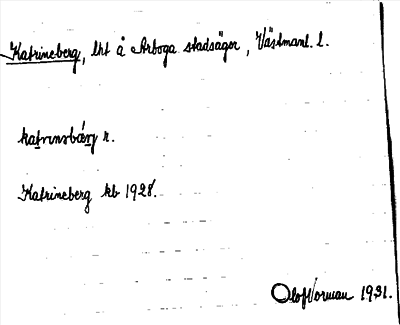 Katrineberg, lht å Arboga stadsäger, Västmanl. l.
katrinsbärj r.
Katrineberg kb 1928.
Olof Vorman 1931.